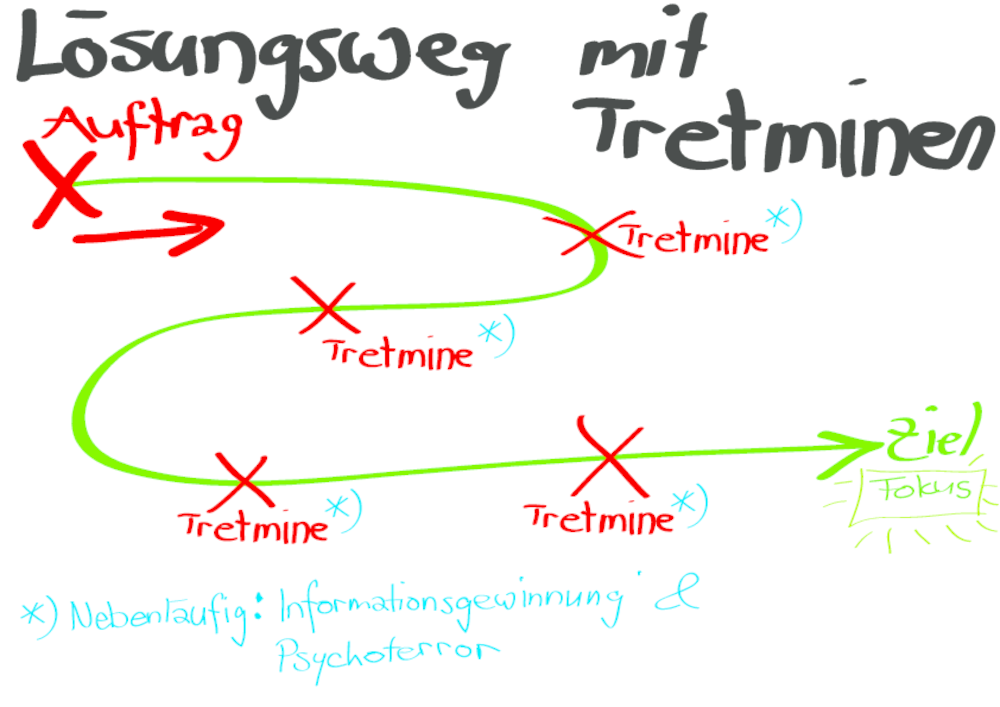 Lösungsweg mit
Tretminen
Auftrag
Tretmine *)
Tretmine *)
Ziel
Fokus
Tretmine *)
Tretmine *)
*) Nebenläufig: Informationsgewinnung &
Psychoterror